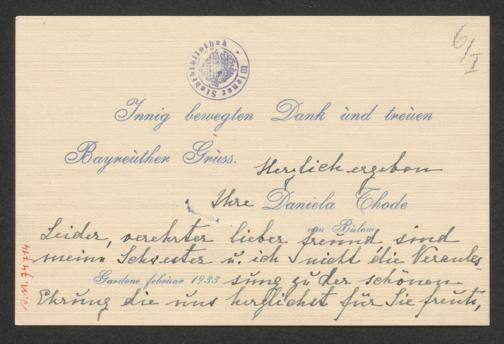 6/I
Wiener Stadtbibliothek
Innig bewegten Dank und treuen
Bayreuther Gruss.
Herzlich ergeben
Ihre Daniela Thode
von Bülow
Leider, verehrter lieber freund sind
meine Schwester u. ich nicht die Veranles-
Gardone februar 1933
sung zu der schönen
Ehrung die uns herzlichst für Sie freut,
J.N. 74714